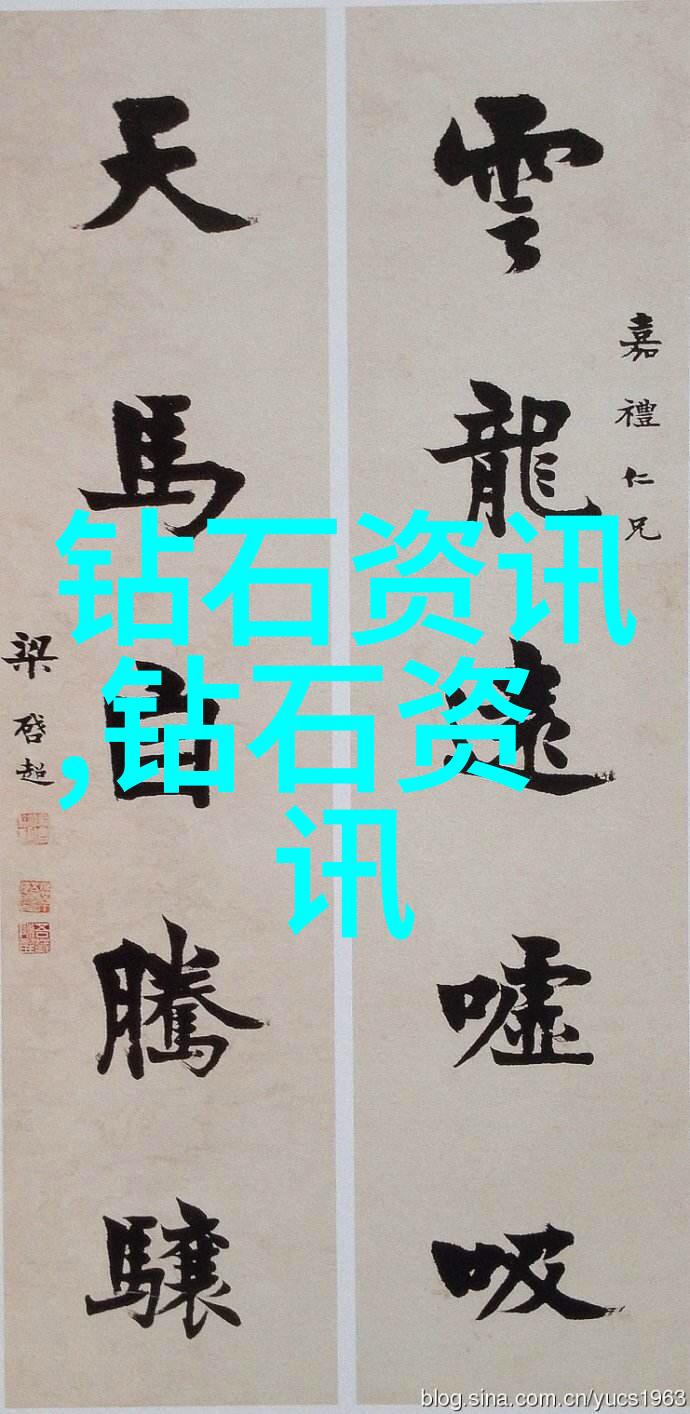 雲龍遠噓吸
嘉禮仁兄
天馬自騰驤
梁啓超
钻石资讯
,钻石资
讯
blog.sina.com.cn/yucs1963